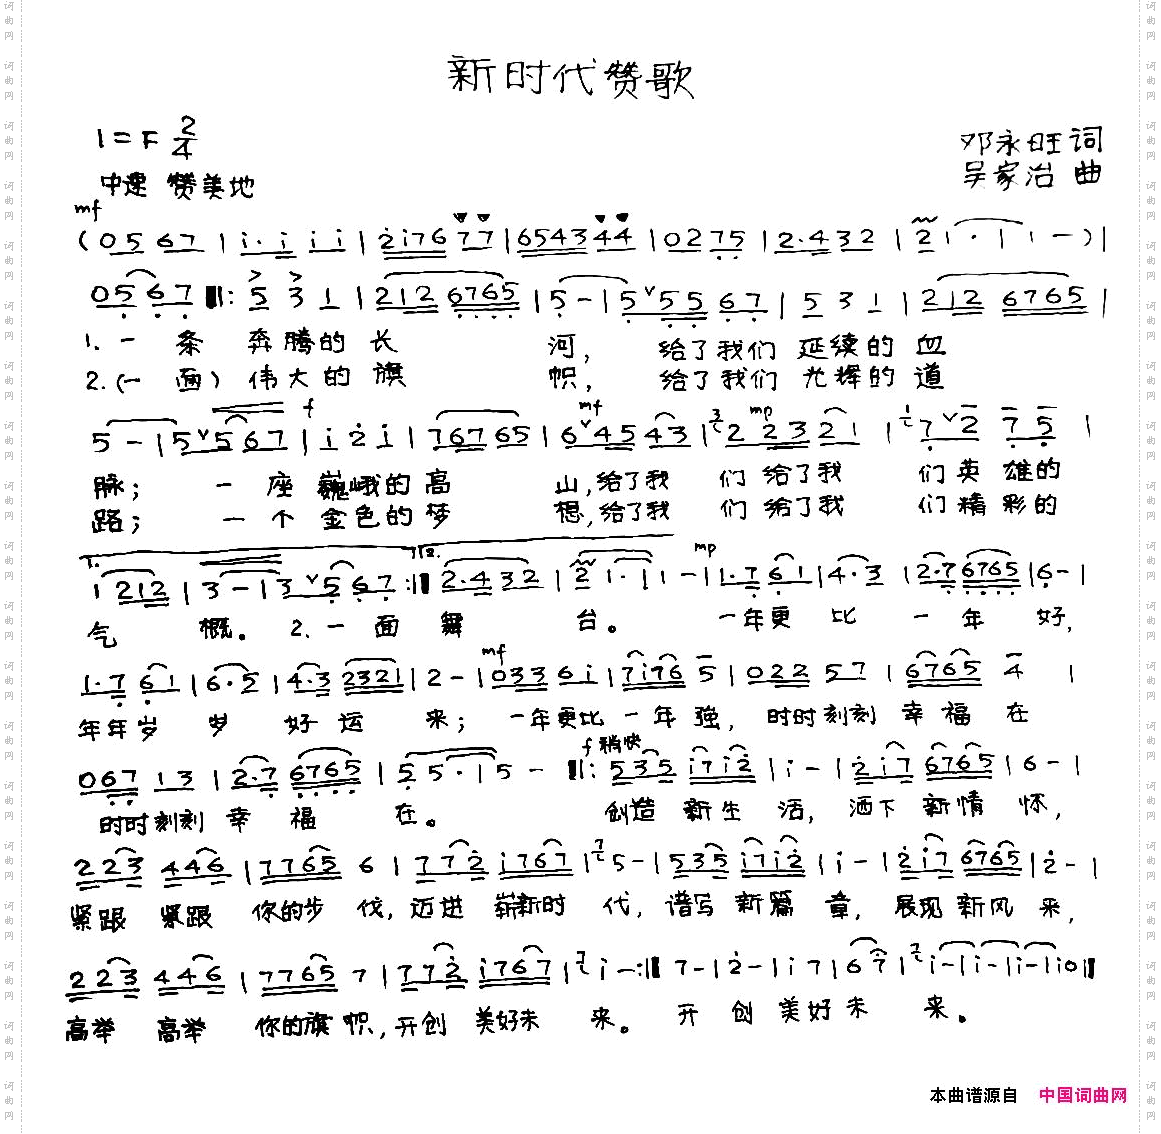 新时代赞歌
1=F 2/4
邓永旺词
中速 赞美地
吴家治曲
mf
(05 67 | i·i i i | 2i76 77 | 6543 44 | 02 75 | 2·4 32 | 2 1· | 1 - ) |
05 67 ‖: 5 3 1 | 212 6765 | 5 - | 5 55 67 | 5 3 1 | 212 6765 |
1. 一条 奔腾的长 河, 给了我们 延续的血
2.(一面) 伟大的旗 帜, 给了我们 光辉的道
f mf mp
5 - | 5 5 67 | i 2 i | 76765 | 6 45 43 | 2 23 21 | 7 2 7 5 |
脉; 一座巍峨的高 山,给了我 们给了我 们英雄的
路; 一个金色的梦 想,给了我 们给了我 们精彩的
1. 2. mp
1 212 | 3 - | 3 5 67 :‖ 2·4 32 | 2 1· | 1 - | 1·7 61 | 4·3 | 2·7 6765 | 6 - |
气 概。 2. 一面舞 台。 一年更比 一年好,
mf
1·7 61 | 6·5 | 4·3 2321 | 2 - | 033 6i | 7i76 5 | 022 57 | 6765 4 |
年年岁岁 好运来; 一年更比一年强, 时时刻刻幸福在
f 稍快
067 13 | 2·7 6765 | 5 5· | 5 - ‖: 535 i7i2 | i - | 2i7 6765 | 6 - |
时时刻刻幸福 在。 创造新生活, 洒下新情怀,
223 446 | 7765 6 | 772 i767 | 5 - | 535 i7i2 | i - | 2i7 6765 | 2 - |
紧跟紧跟你的步伐,迈进崭新时代,谱写新篇章,展现新风采,
223 446 | 7765 7 | 772 i767 | i - :‖ 7 - | 2 - | i 7 | 67 | i - | i - | i - | i0 ‖
高举高举你的旗帜,开创美好未来。开创美好未来。
本曲谱源自 中国词曲网
词曲网